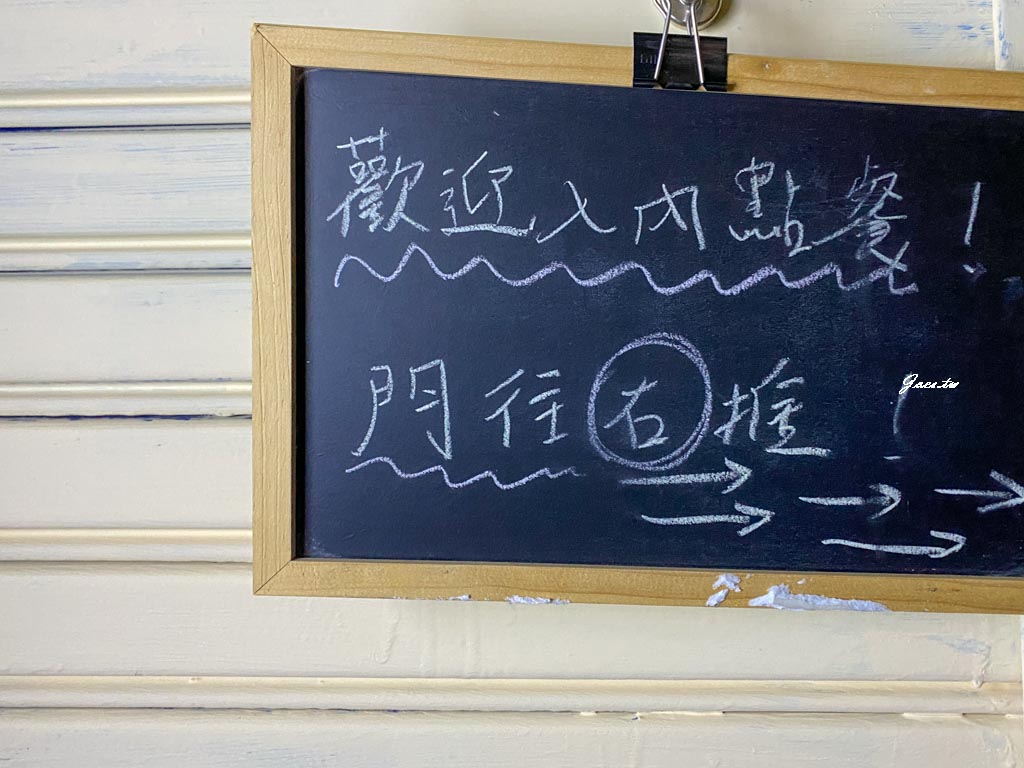 歡迎入內點餐！
門往右推！
Jaco.tw